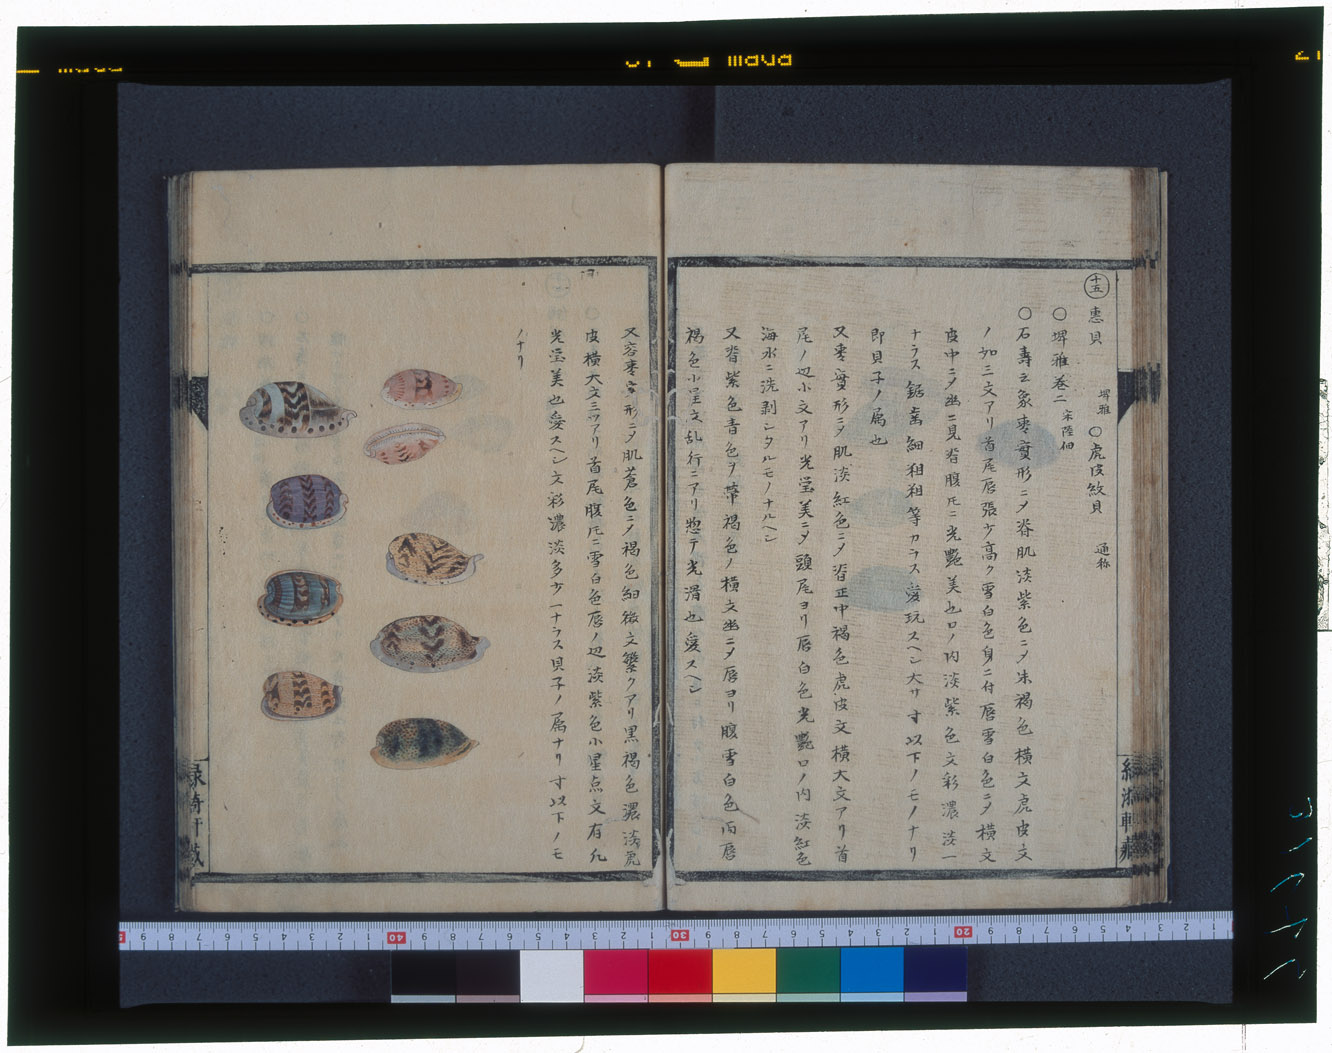 十五 惠貝 埤雅 〇虎皮紋貝 通称
〇埤雅巻二 宋陸佃
〇石壽云象棗實形ニメ脊肌淡紫色ニメ朱褐色横文虎皮文
ノ如三文アリ首尾唇張少高ク雪白色身ニ付唇雪白色ニメ横文
皮中ニメ幽ニ見脊腹圧ニ光艶美也口ノ内淡紫色文彩濃淡一
ナラス鋸歯細粗等カラス愛玩スヘシ大サ寸以下ノモノナリ
即貝子ノ属也
又棗實形ニメ肌淡紅色ニメ脊正中褐色虎皮文横大文アリ首
尾ノ辺小文アリ光瑩美ニメ頭尾ヨリ唇白色光艶口ノ内淡紅色
海水ニ洗剥シタルモノナルヘシ
又脊紫色青色ヲ帯褐色ノ横文幽ニメ唇ヨリ腹雪白色両唇
褐色小星文乱行ニアリ惣テ光滑也愛スヘシ
又容棗実形ニメ肌蒼色ニメ褐色細微文繁クアリ黒褐色濃淡虎
皮横大文三ツアリ首尾腹圧ニ雪白色唇ノ辺淡紫色小星点文有凡
光瑩美也愛スヘシ文彩濃淡多少一ナラス貝子ノ属ナリ寸以下ノモ
ノナリ